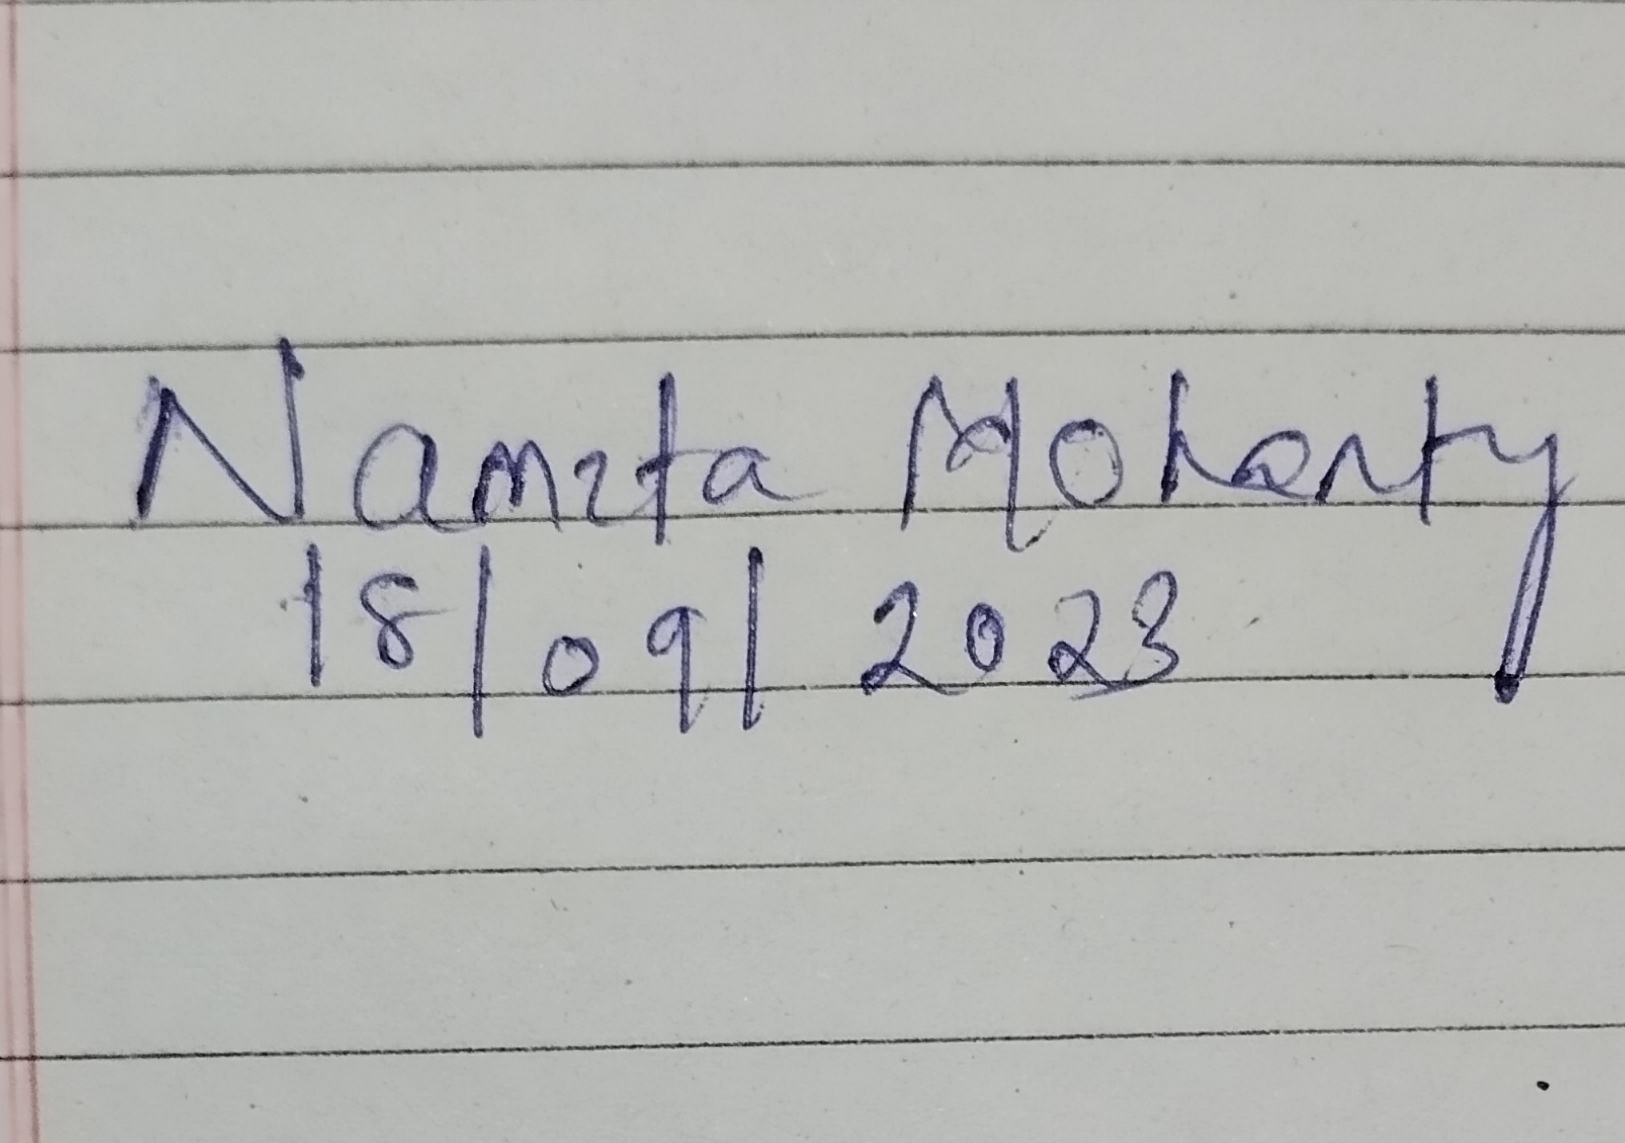 Namita Mohanty
18/09/2023